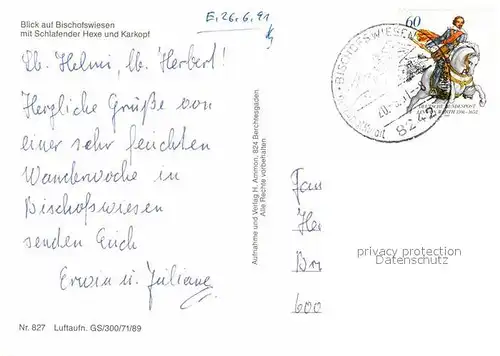 Blick auf Bischofswiesen
mit Schlafender Hexe und Karkopf
E, 26.6.91
Lb. Helmi, lb. Herbert!
Herzliche Grüße von
einer sehr feuchten
Wanderwoche in
Bischofswiesen
senden Euch
Erwin u. Juliane
Nr. 827 Luftaufn. GS/300/71/89
Aufnahme und Verlag H. Ammon, 824 Berchtesgaden
Alle Rechte vorbehalten
60
DEUTSCHE BUNDESPOST
BISCHOFSWIESEN
8242
Fam
He
Br
600
privacy protection
Datenschutz